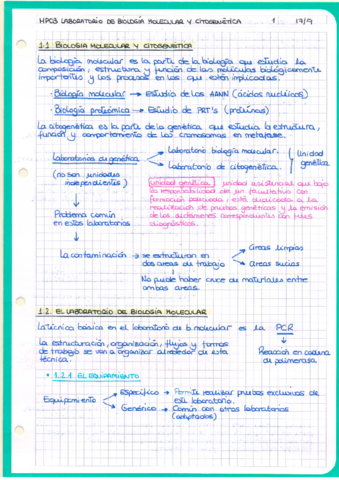 MPCB LABORATORIO DE BIOLOGÍA MOLECULAR Y CITOGENÉTICA 1 17/9
1.1 BIOLOGÍA MOLECULAR Y CITOGENÉTICA
La biología molecular es la parte de la biología que estudia la
composición, estructura y función de las moléculas biológicamente
importantes y los procesos en los que están implicadas.
· Biología molecular → Estudio de los AANN (ácidos nucleicos)
· Biología proteómica → Estudio de PRT's (proteínas)
La citogenética es la parte de la genética que estudia la estructura,
función y comportamiento de los cromosomas en metafase.
Laboratorios de genética
Laboratorio biología molecular.
Laboratorio de citogenética.
Unidad
genética
(no son unidades
independientes)
Unidad genética: unidad asistencial que bajo
la responsabilidad de un facultativo con
formación adecuada, está dedicada a la
realización de pruebas genéticas y la emisión
de los dictámenes correspondientes con fines
diagnósticos.
Problema común
en estos laboratorios
La contaminación → se estructuran en
dos areas de trabajo
areas limpias
areas sucias
No puede haber cruce de materiales entre
ambas areas.
1.2. EL LABORATORIO DE BIOLOGÍA MOLECULAR
La técnica básica en el laboratorio de b.molecular es la PCR
La estructuración, organización, flujos y formas
de trabajo se van a organizar alrededor de esta
técnica.
Reacción en cadena
de polimerasa.
• 1.2.1 EL EQUIPAMIENTO
Equipamiento
Específico → Permite realizar pruebas exclusivas de
este laboratorio.
Genérico → Común con otros laboratorios
(adaptados)